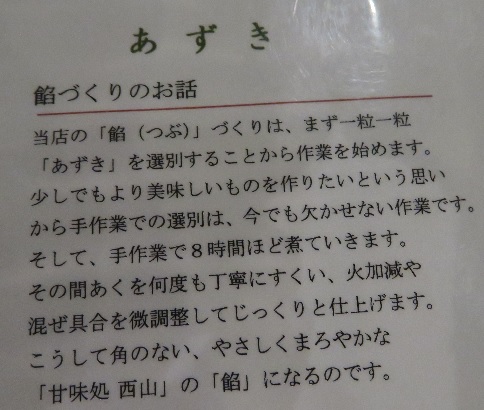 あずき
餡づくりのお話
当店の「餡（つぶ）」づくりは、まず一粒一粒
「あずき」を選別することから作業を始めます。
少しでもより美味しいものを作りたいという思い
から手作業での選別は、今でも欠かせない作業です。
そして、手作業で８時間ほど煮ていきます。
その間あくを何度も丁寧にすくい、火加減や
混ぜ具合を微調整してじっくりと仕上げます。
こうして角のない、やさしくまろやかな
「甘味処 西山」の「餡」になるのです。